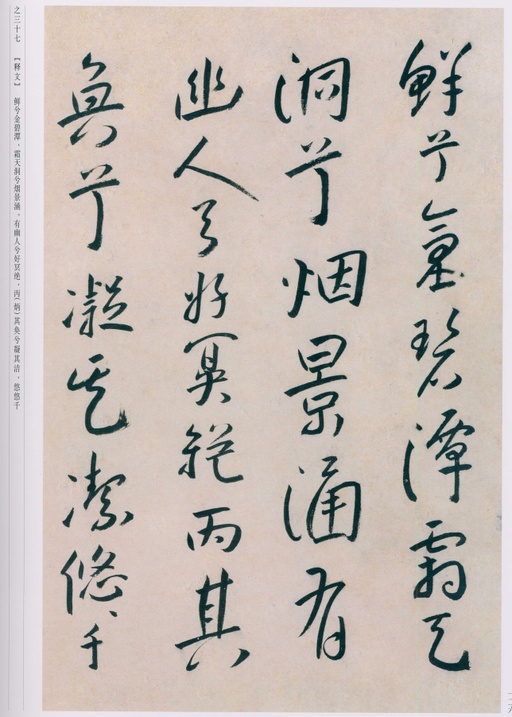 鮮兮金碧潭霜天
洞兮烟景涵有
幽人兮好冥絕丙其
奐兮凝其潔悠悠千
之三十七 【释文】 鲜兮金碧潭，霜天洞兮烟景涵，有幽人兮好冥绝，丙（炳）其奂兮凝其洁，悠悠千